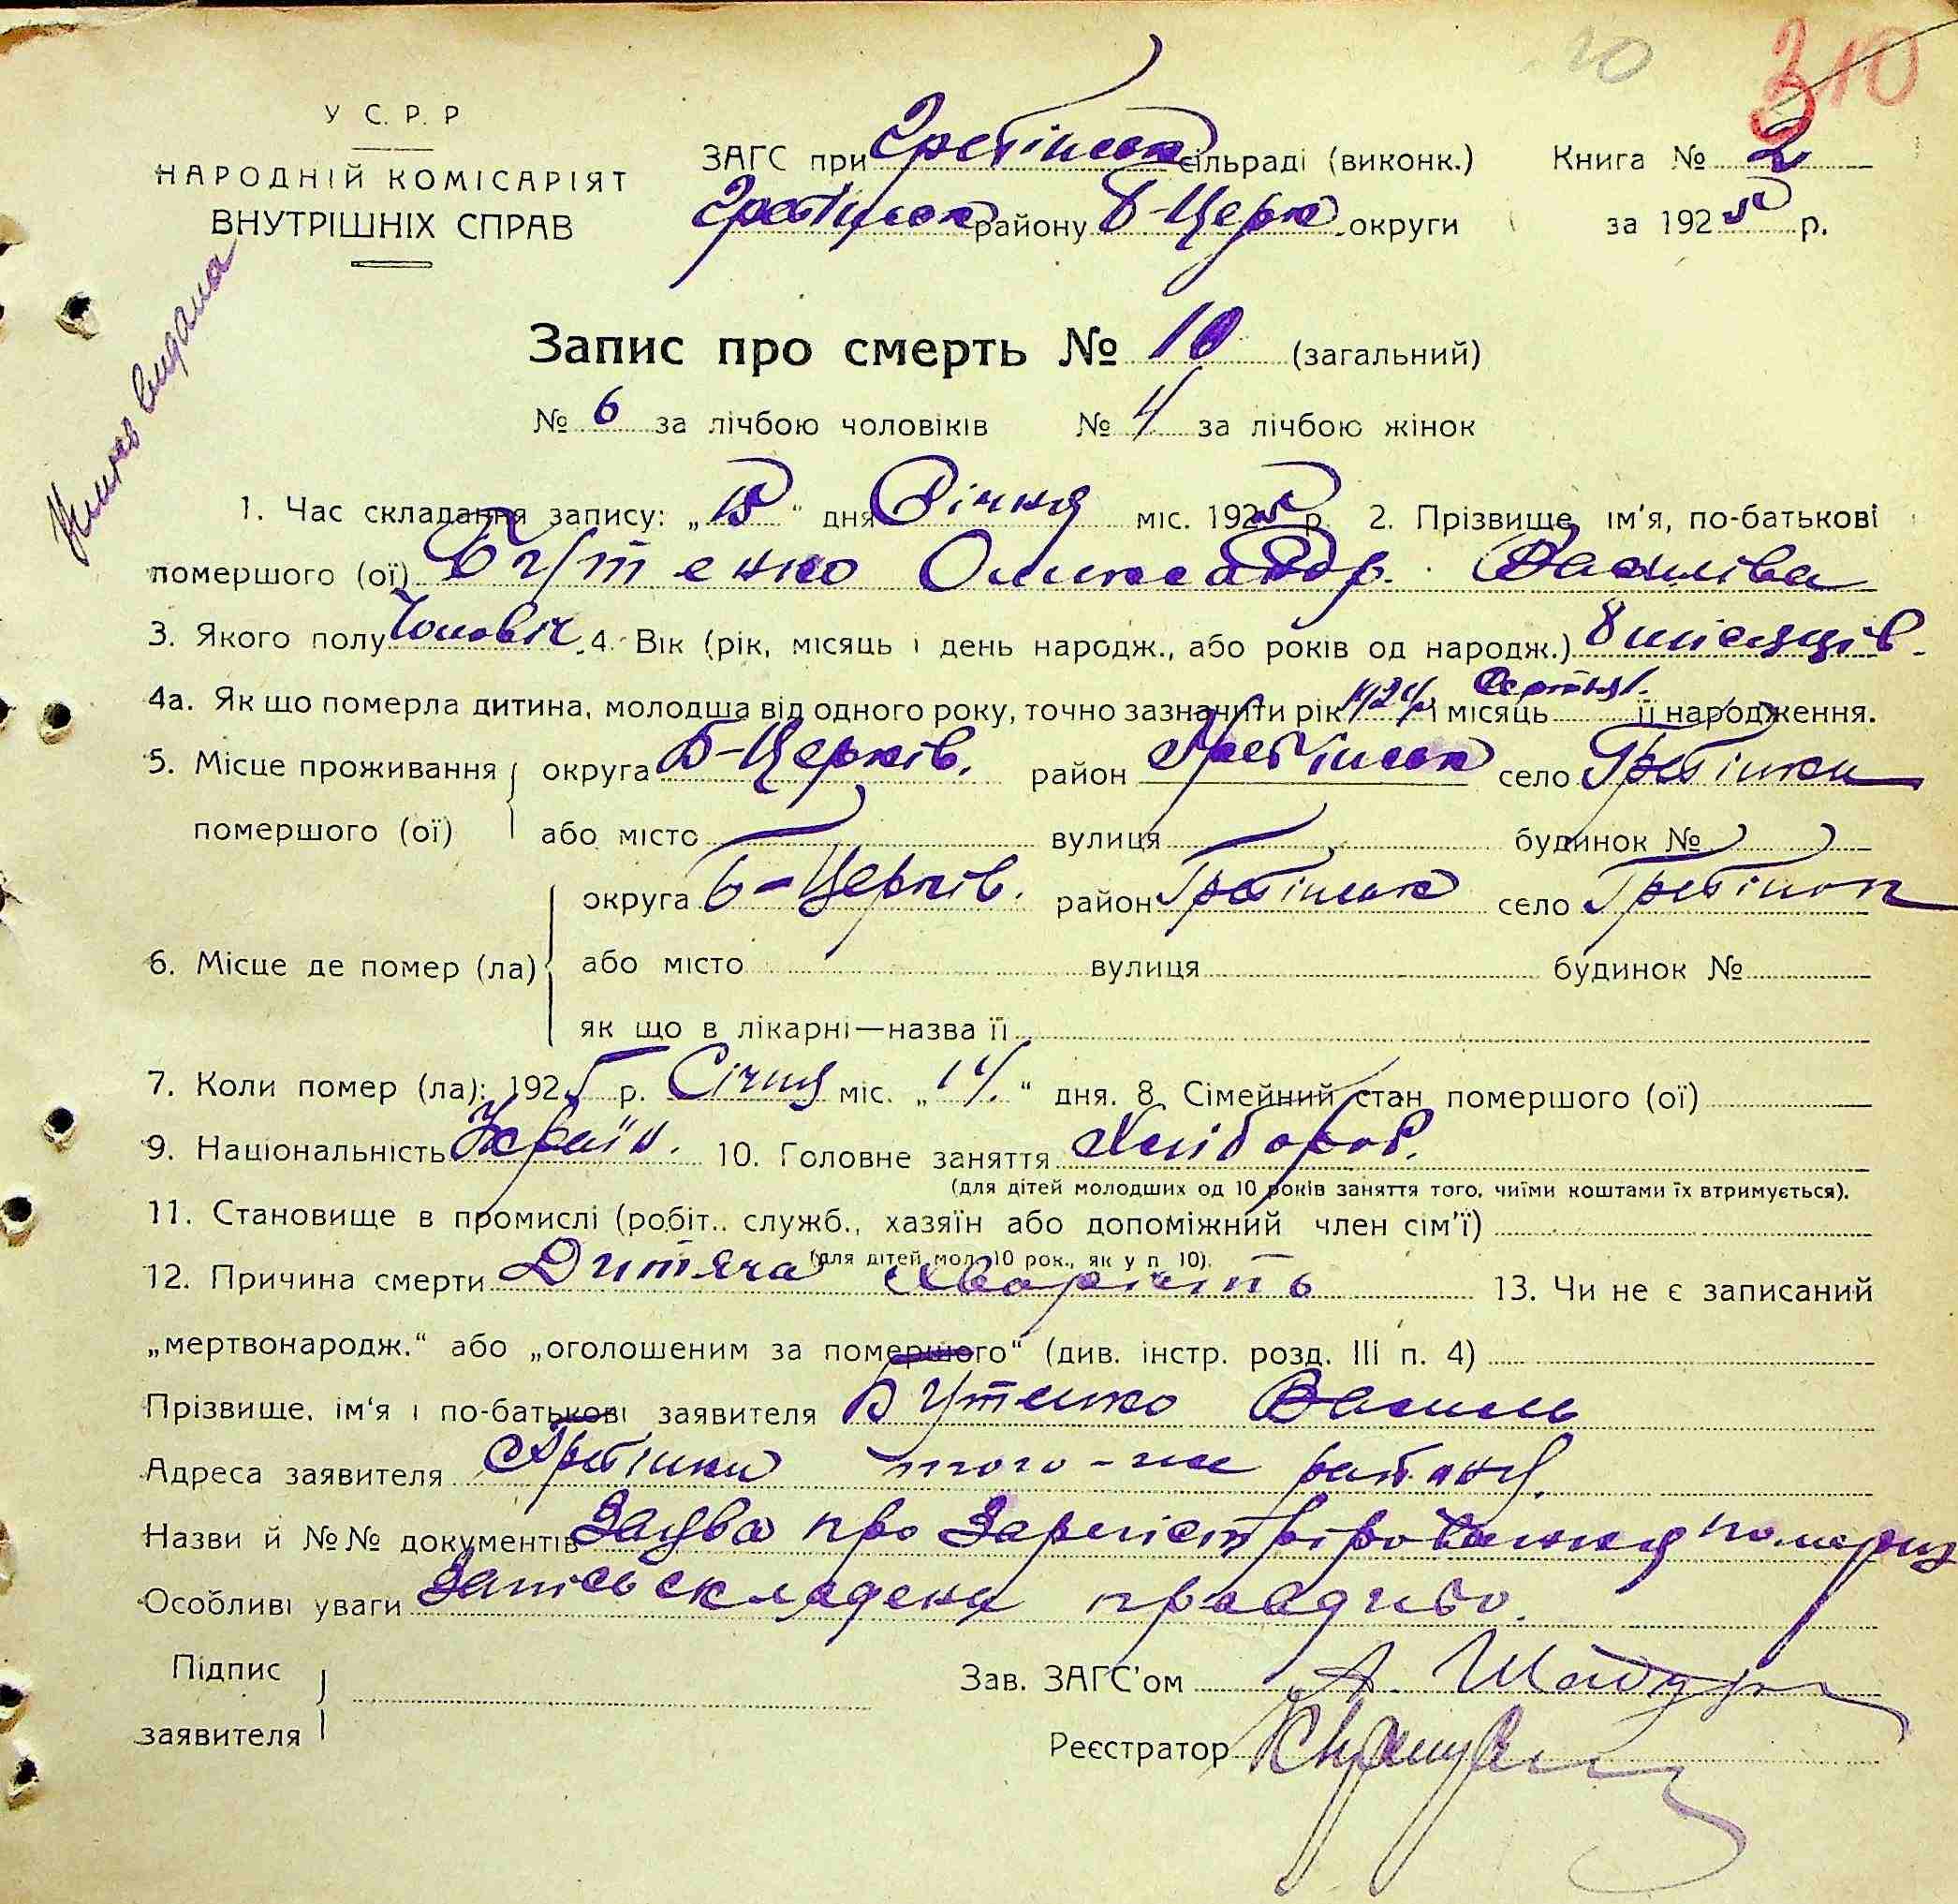 310
20
У С. Р. Р
НАРОДНІЙ КОМІСАРІЯТ
ВНУТРІШНІХ СПРАВ
ЗАГС при Гребінськ сільраді (виконк.) Книга № 2
Гребінськ району Б-Церк. округи за 1925 р.
видана
Запис про смерть № 10 (загальний)
№ 6 за лічбою чоловіків № 4 за лічбою жінок
1. Час складання запису: „15" дня Січня міс. 1925 р. 2. Прізвище, ім'я, по-батькові
помершого (ої) Бутенко Олександр. Васильіва
3. Якого полу Чоловіч. 4. Вік (рік, місяць і день народж., або років од народж.) 8 місяців.
4а. Як що померла дитина, молодша від одного року, точно зазначити рік 1924 і місяць її народження.
5. Місце проживання округа Б-Церків. район Гребінськ село Гребінки
помершого (ої) або місто вулиця будинок №
округа Б-Церків. район Гребінськ село Гребінок
6. Місце де помер (ла) або місто вулиця будинок №
як що в лікарні—назва її
7. Коли помер (ла): 1925 р. Січня міс. „14." дня. 8. Сімейний стан помершого (ої)
9. Національність Україн. 10. Головне заняття Хлібороб.
(для дітей молодших од 10 років заняття того, чиїми коштами їх втримується).
11. Становище в промислі (робіт.. служб., хазяїн або допоміжний член сім'ї)
(для дітей мол. 10 рок., як у п 10).
12. Причина смерти Дитяча хворість 13. Чи не є записаний
„мертвонародж." або „оголошеним за помершого" (див. інстр. розд. III п. 4)
Прізвище, ім'я і по-батькові заявителя Бутенко Василь
Адреса заявителя Гребінки того-же району.
Назви й №№ документів Заява про Зарегістріровання
Особливі уваги Запісь складена правдиво.
Підпис
заявителя
Зав. ЗАГС'ом А.
Реєстратор